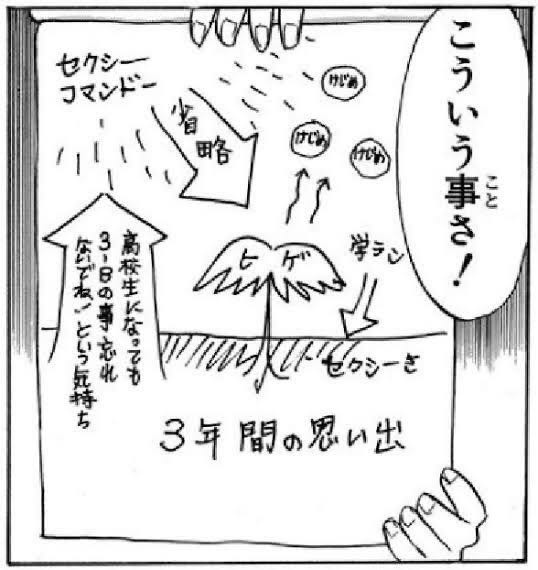 こういう事さ！
こと
セクシー
コマンドー
省略
けじめ
けじめ
けじめ
ヒゲ
学ラン
高校生になっても
3-Bの事忘れ
ないでね！という気持ち
セクシーさ
3年間の思い出